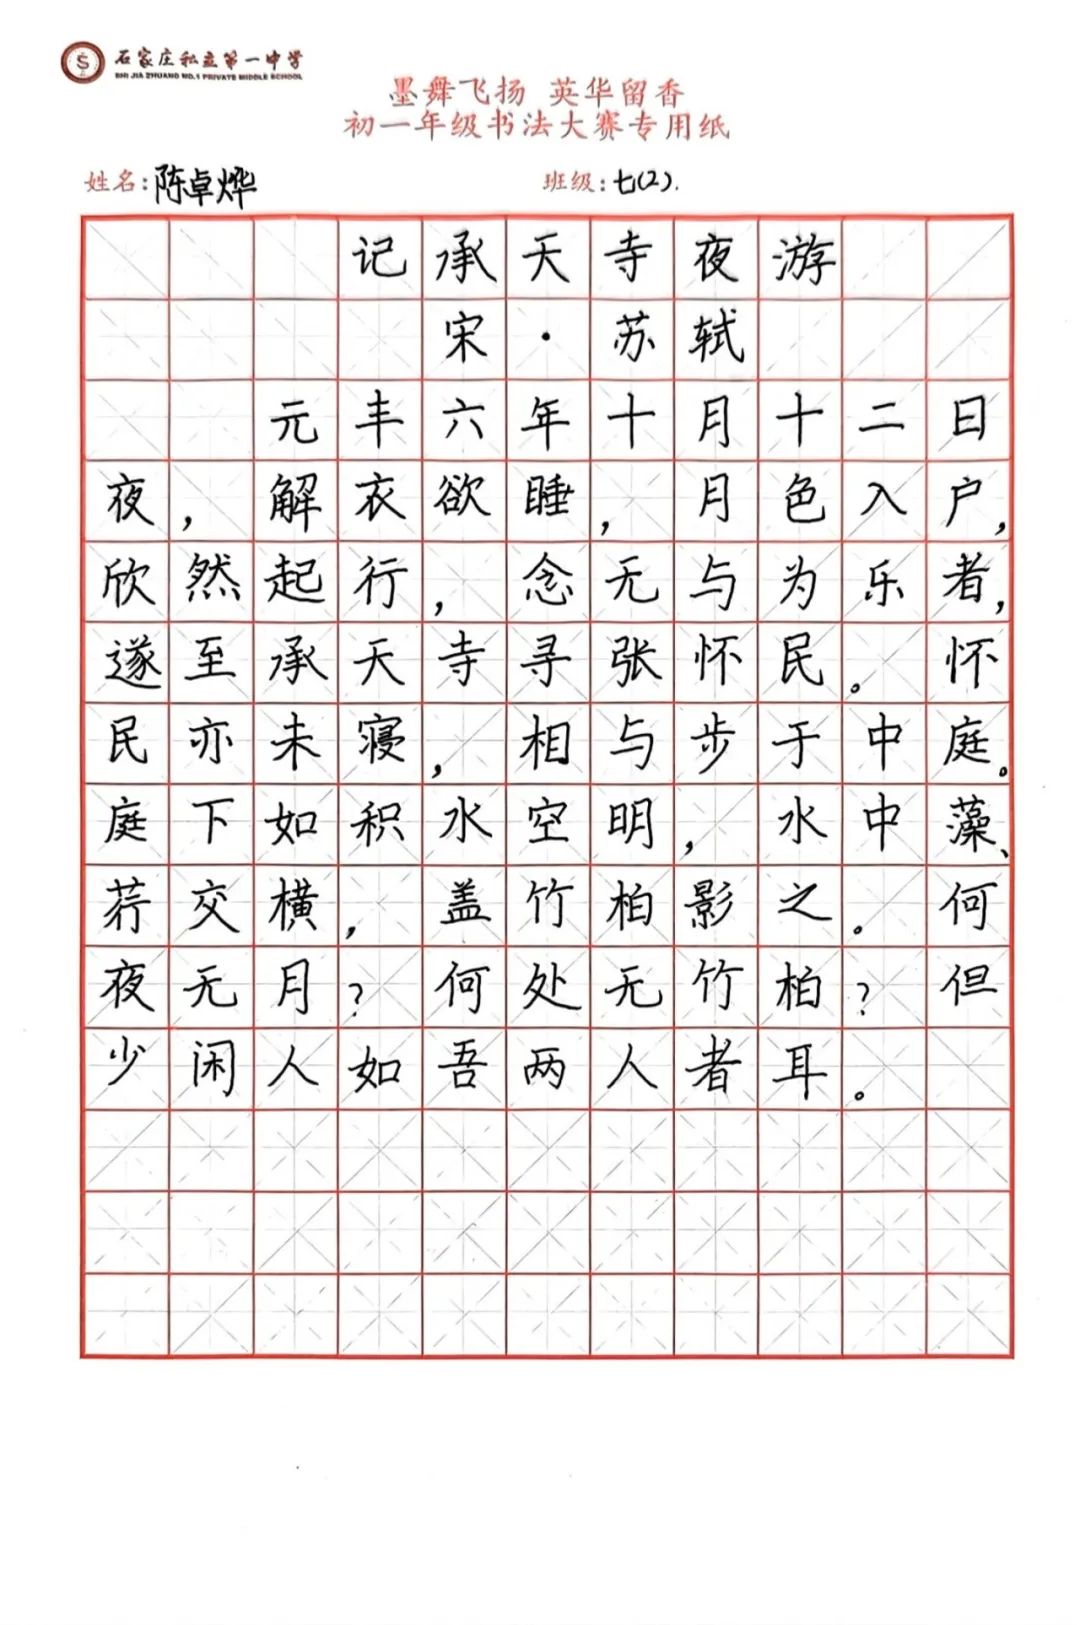 石家庄私立第一中学
SHI JIA ZHUANG NO.1 PRIVATE MIDDLE SCHOOL
墨舞飞扬 英华留香
初一年级书法大赛专用纸
姓名:陈卓烨 班级:七(2).
记承天寺夜游
宋·苏轼
元丰六年十月十二日
夜,解衣欲睡,月色入户,
欣然起行,念无与为乐者,
遂至承天寺寻张怀民。怀
民亦未寝,相与步于中庭。
庭下如积水空明,水中藻、
荇交横,盖竹柏影之。何
夜无月?何处无竹柏?但
少闲人如吾两人者耳。